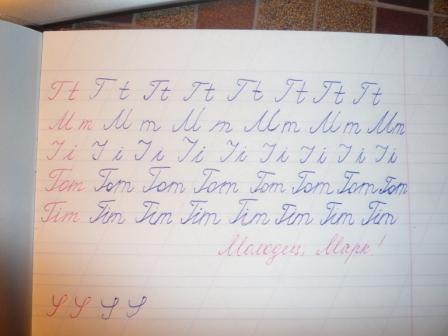 Tt T t Tt Tt Tt Tt Tt Tt
M m M m M m M m M m Mm
I i I i I i I i I i I i I i I i I i
Tom Tom Tom Tom Tom Tom Tom Tom
Tim Tim Tim Tim Tim Tim Tim Tim
Молодец, Марк!
S S S S